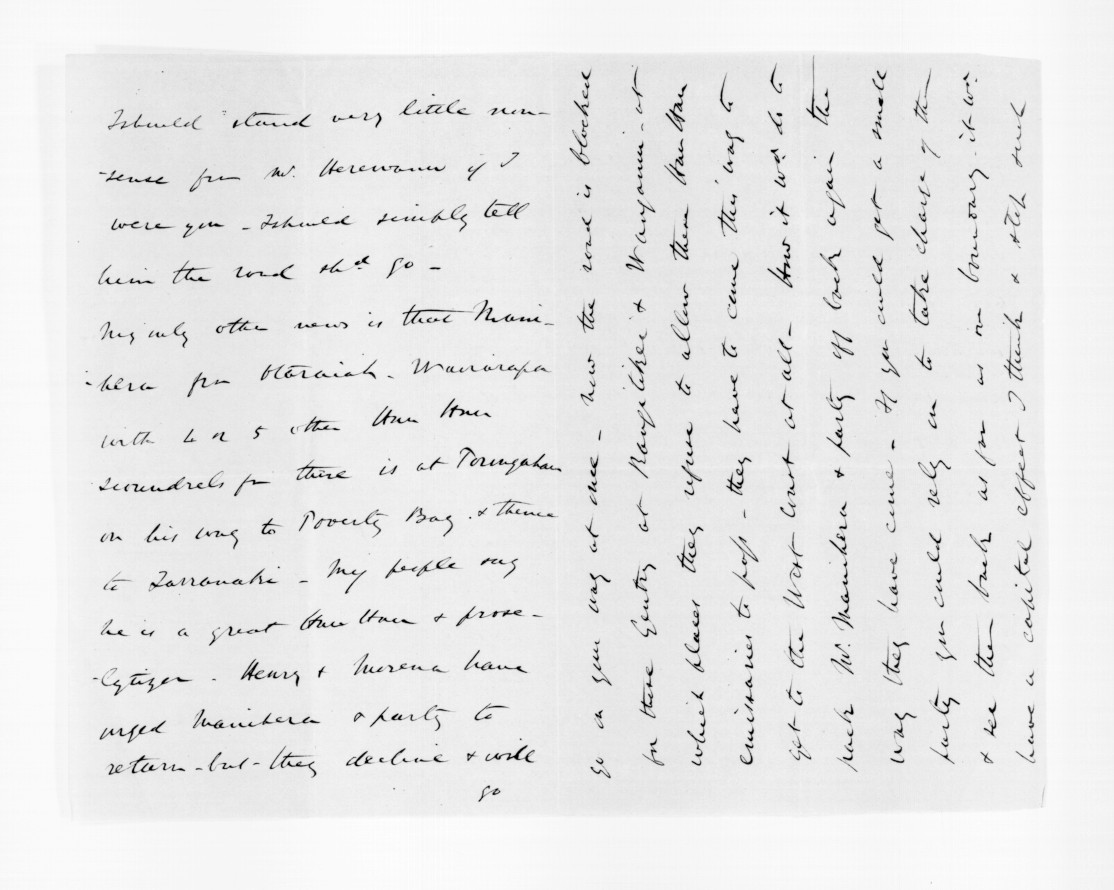 I should stand very little non-
-sense from Mr. Herewaru if I
were you - I should simply tell
him the road shd. go -
My only other news is that Mani-
-hera from Otaraiah - Wairarapa
with 4 or 5 other Hau Hau
scoundrels from there is at Porangahau
on his way to Poverty Bay & thence
to Tarranaki - My people say
he is a great Hau Hau & prose-
-lytizer - Henry & Morena have
urged Manihera & party to
return - but - they decline & will
go
go on your way at once - now the road is blocked
for these Gentry at Rangitikei & Wanganui - at
which places they refuse to allow these Hau Hau
emissaries to pass - they have to come this way to
get to the West Coast at all - How it wd. do to
pack Mr. Manihera & party off back again the
way they have come - If you could get a small
party you could rely on to take charge of them
& see them back as far as our boundary - it wd.
have a capital effect I think & stop such